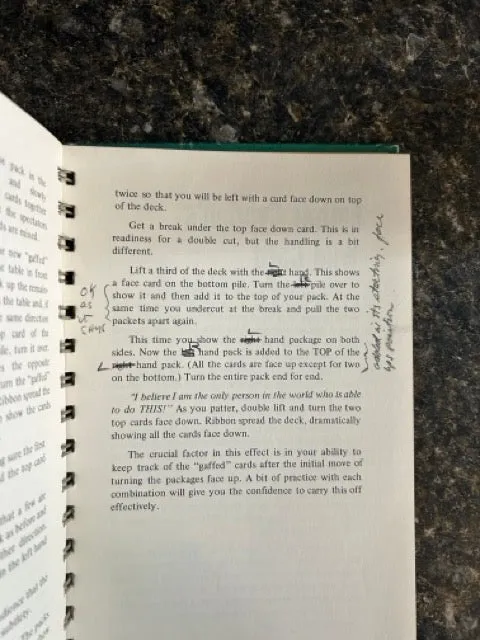 is pack in the
and slowly
cards together
the spectators
ds are mixed.
new "gaffed"
table in front
k up the remain
the table and, if
same direction
p card of the
ile, turn it over.
the opposite
turn the "gaffed"
Ribbon spread the
show the cards
sure the first
the top card
that a few are
as before and
ther direction.
in the left hand
udience that the
The packs
twice so that you will be left with a card face down on top
of the deck.
Get a break under the top face down card. This is in
readiness for a double cut, but the handling is a bit
different.
Lift a third of the deck with the right hand. This shows
a face card on the bottom pile. Turn the left pile over to
show it and then add it to the top of your pack. At the
same time you undercut at the break and pull the two
packets apart again.
This time you show the right hand package on both
sides. Now the left hand pack is added to the TOP of the
right hand pack. (All the cards are face up except for two
on the bottom.) Turn the entire pack end for end.
"I believe I am the only person in the world who is able
to do THIS!" As you patter, double lift and turn the two
top cards face down. Ribbon spread the deck, dramatically
showing all the cards face down.
The crucial factor in this effect is in your ability to
keep track of the "gaffed" cards after the initial move of
turning the packages face up. A bit of practice with each
combination will give you the confidence to carry this off
effectively.
OK
as
it
stays
L
L
added in its starting, face
up position.